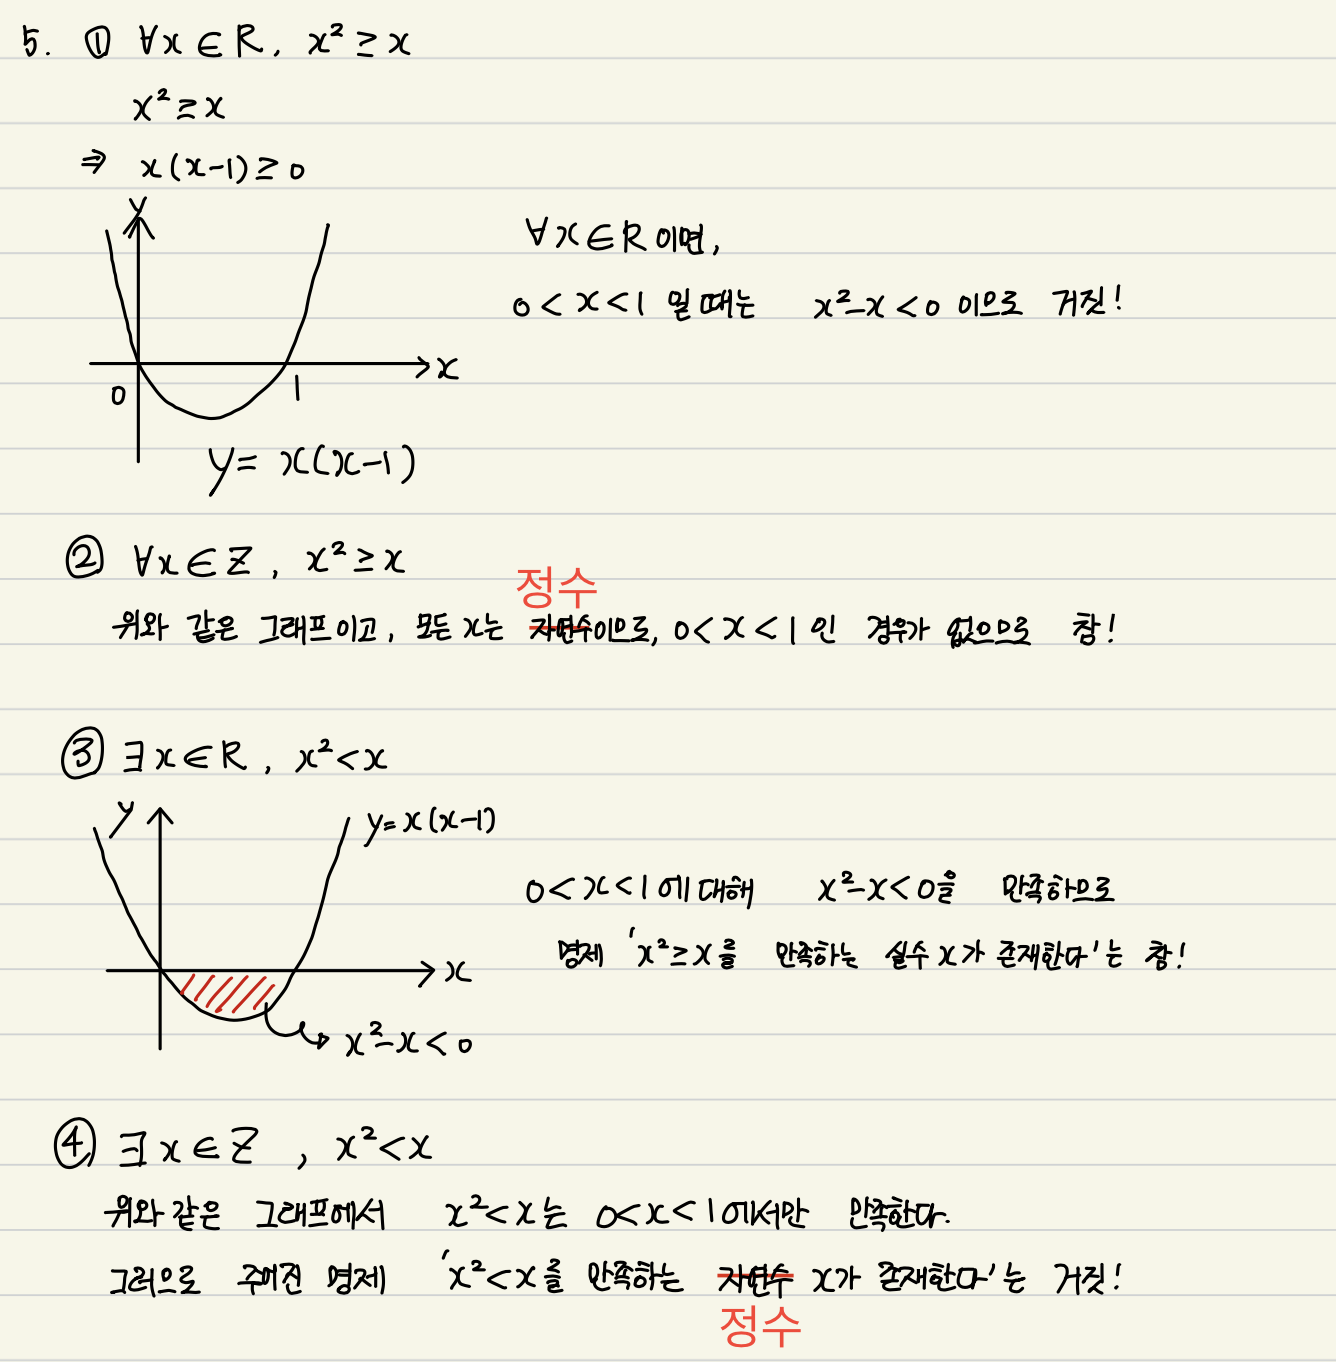 5. ① ∀x∈R, x² ≥ x
x² ≥ x
⇒ x(x-1) ≥ 0
y
∀x∈R 이면,
0 < x < 1 일 때는 x²-x < 0 이므로 거짓!
x
0 1
y = x(x-1)
② ∀x∈Z, x² ≥ x
정수
위와 같은 그래프이고, 모든 x는 자연수이므로, 0 < x < 1 인 경우가 없으므로 참!
③ ∃x∈R, x² < x
y
y = x(x-1)
0 < x < 1 에 대해 x²-x < 0을 만족하므로
명제 'x² ≥ x를 만족하는 실수 x가 존재한다'는 참!
x
x²-x < 0
④ ∃x∈Z, x² < x
위와 같은 그래프에서 x² < x는 0 < x < 1에서만 만족한다.
그러므로 주어진 명제 'x² < x를 만족하는 자연수 x가 존재한다'는 거짓!
정수